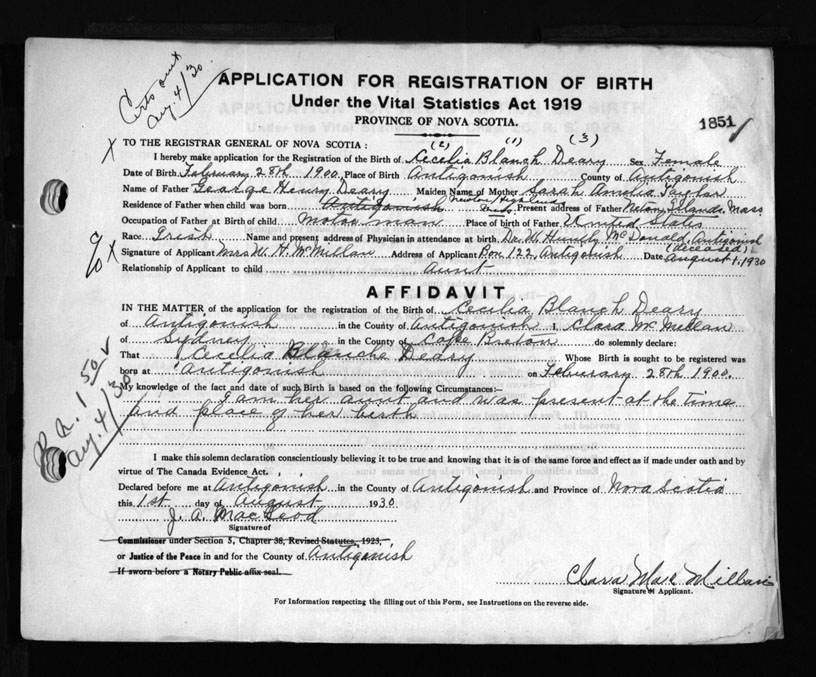 Certs out x
Aug. 4/30
APPLICATION FOR REGISTRATION OF BIRTH
Under the Vital Statistics Act 1919
PROVINCE OF NOVA SCOTIA.
1851
(2) (1) (3)
X TO THE REGISTRAR GENERAL OF NOVA SCOTIA :
I hereby make application for the Registration of the Birth of Cecelia Blanch Deary Sex Female
Date of Birth February 28th 1900. Place of Birth Antigonish County of Antigonish
Name of Father George Henry Deary Maiden Name of Mother Sarah Amelia Taylor
Residence of Father when child was born Antigonish Newton Highlands Present address of Father Mass
Occupation of Father at Birth of child Motor man Place of birth of Father United States
Race Irish Name and present address of Physician in attendance at birth Dr. W. Huntly McDonald, Antigonish
(deceased)
Signature of Applicant Mrs W. H. McMillan Address of Applicant Box 122, Antigonish Date August 1, 1930
Relationship of Applicant to child aunt
AFFIDAVIT
IN THE MATTER of the application for the registration of the Birth of Cecelia Blanch Deary
of Antigonish in the County of Antigonish I, Clara McMillan
of Sydney in the County of Cape Breton do solemnly declare:
That Cecelia Blanche Deary Whose Birth is sought to be registered was
born at Antigonish on February 28th 1900.
My knowledge of the fact and date of such Birth is based on the following Circumstances:—
I am her aunt and was present at the time
and place of her birth
1 50
Aug. 4/30
I make this solemn declaration conscientiously believing it to be true and knowing that it is of the same force and effect as if made under oath and by
virtue of The Canada Evidence Act.
Declared before me at Antigonish in the County of Antigonish and Province of Nova Scotia
this 1st day of August 1930
J. A. MacLeod
Signature of
Commissioner under Section 5, Chapter 38, Revised Statutes, 1923,
or Justice of the Peace in and for the County of Antigonish
If sworn before a Notary Public affix seal.
Clara MacMillan
Signature of Applicant.
For Information respecting the filling out of this Form, see Instructions on the reverse side.